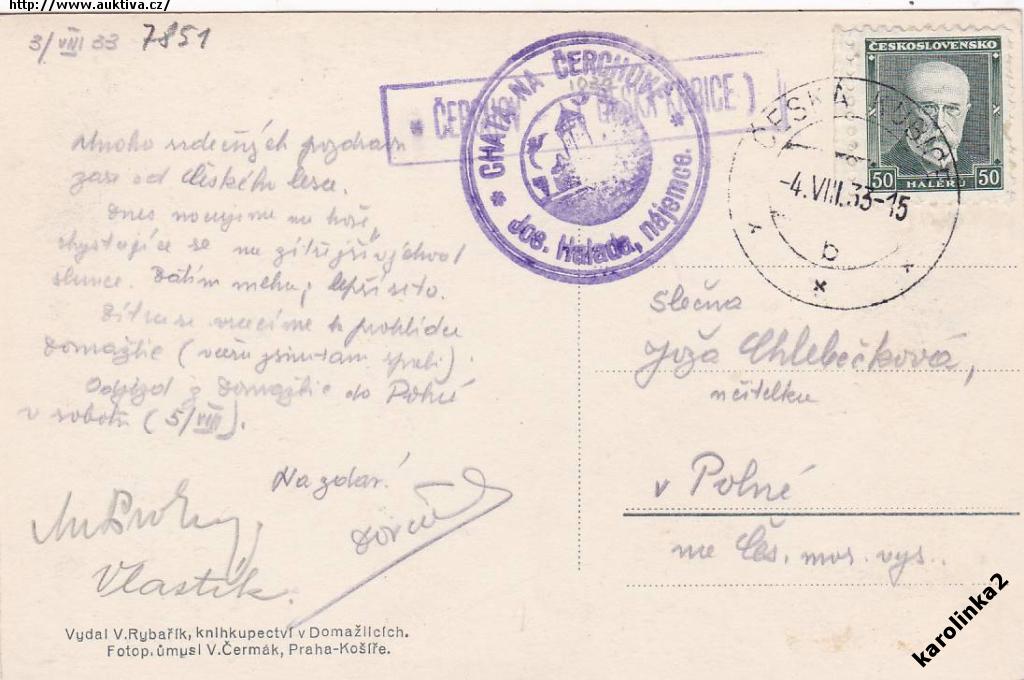 http://www.auktiva.cz/
3/VIII 33 7851
Mnoho srdečných pozdravů
zase od Českého lesa.
Dnes nocujeme na hoře,
chystajíce se na zítřejší východ
slunce. Zatím mlha, lepší se to.
Zítra se vracíme k prohlídce
Domažlic (včera jsme tam spali).
Odjezd z Domažlic do Polné
v sobotu (5/VIII).
Na zdar!
Vlastík.
Vydal V. Rybařík, knihkupectví v Domažlicích.
Fotop. úmysl V. Čermák, Praha-Košíře.
CHATA NA ČERCHOVĚ
Jos. Halada, nájemce.
ČESKOSLOVENSKO
50 HALÉŘŮ 50
ČESKÁ KUBICE
-4.VIII.33-15
b
Slečna
Joža Chlebečková,
učitelka
v Polné
na Čes. mor. vys..
karolinka2